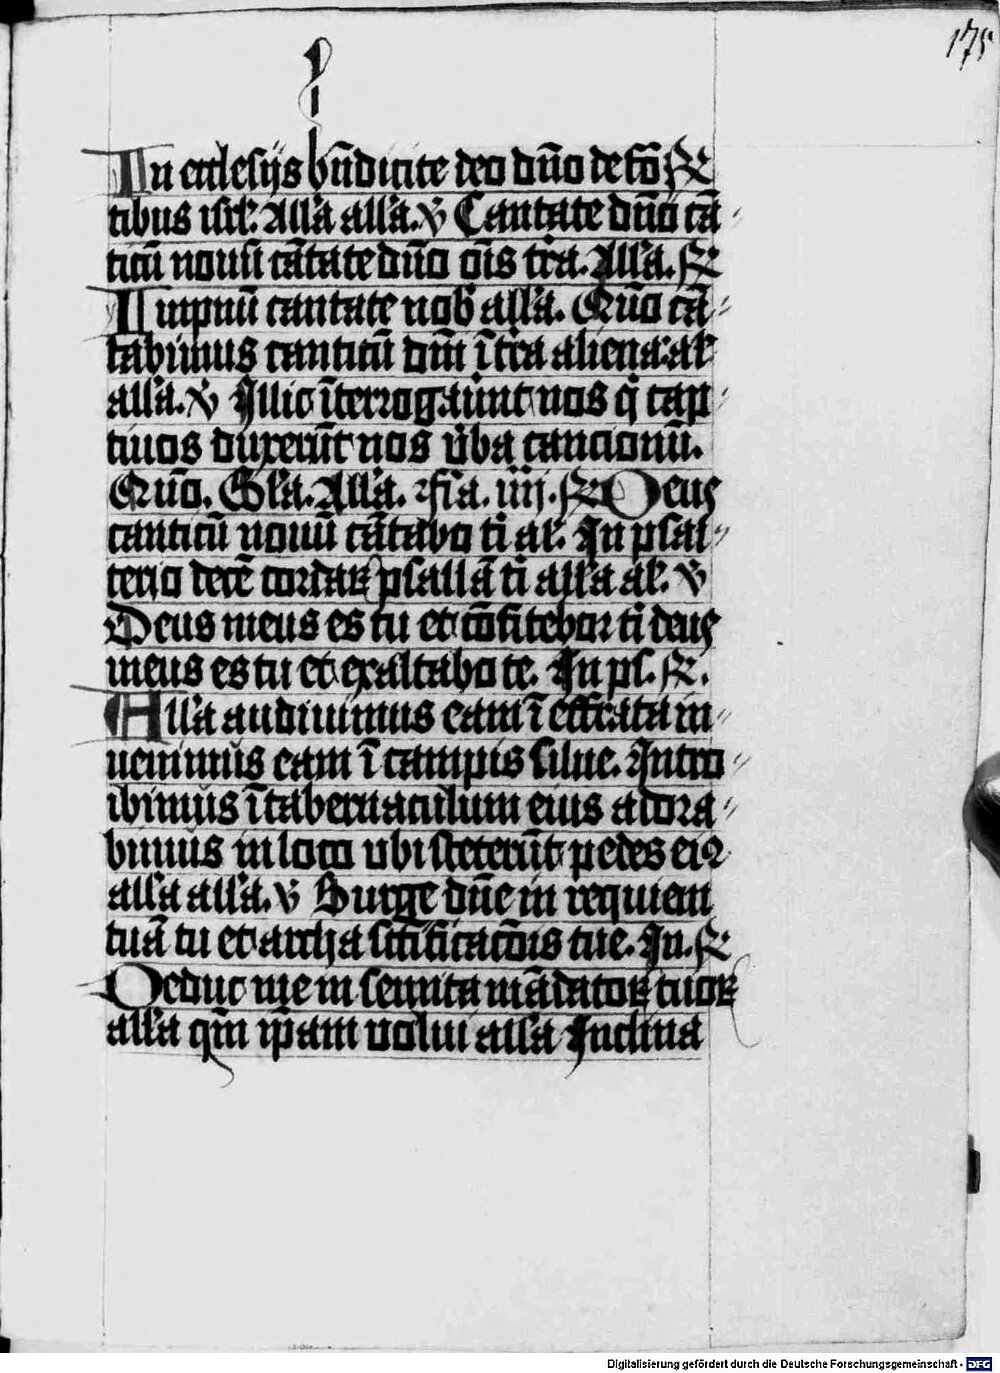 175
In ecclesijs bn̄dicite deo dn̄o de fō ℟
tibus isrl̄. All'a all'a. ℣ Cantate dn̄o cā
ticū noui cātate dn̄o oīs tr̄a. All'a. ℟
Impnū cantate nob̄ all'a. Quō cā
tabimus canticū dn̄i ī t̄ra aliena al'
all'a. ℣ Illic īterrogauūt nos q̄ cap
tiuos duxerūt nos ūba cancionū.
Quō. Gl'a. All'a. fīa. iiij. ℟ Deus
canticū nouū cātabo ti al'. In psal
terio decē cordaꝝ psallā ti all'a al'. ℣
Deus meus es tu et cōfitebor ti deus
meus es tu et exaltabo te. In ps. ℟.
All'a audiuimus eam ī effrata in
uenimus eam ī campis silue. Intro
ibimus ī tabernaculum eius adora
bimus in loco ubi steterūt pedes eiꝰ
all'a all'a. ℣ Surge dn̄e in requiem
tuā tu et archa sc̄ificac̄ōis tue. In. ℟
Deduc me in semita mādatoꝝ tuoꝝ
all'a qm̄ ip̄am volui all'a Inclina
Digitalisierung gefördert durch die Deutsche Forschungsgemeinschaft - DFG